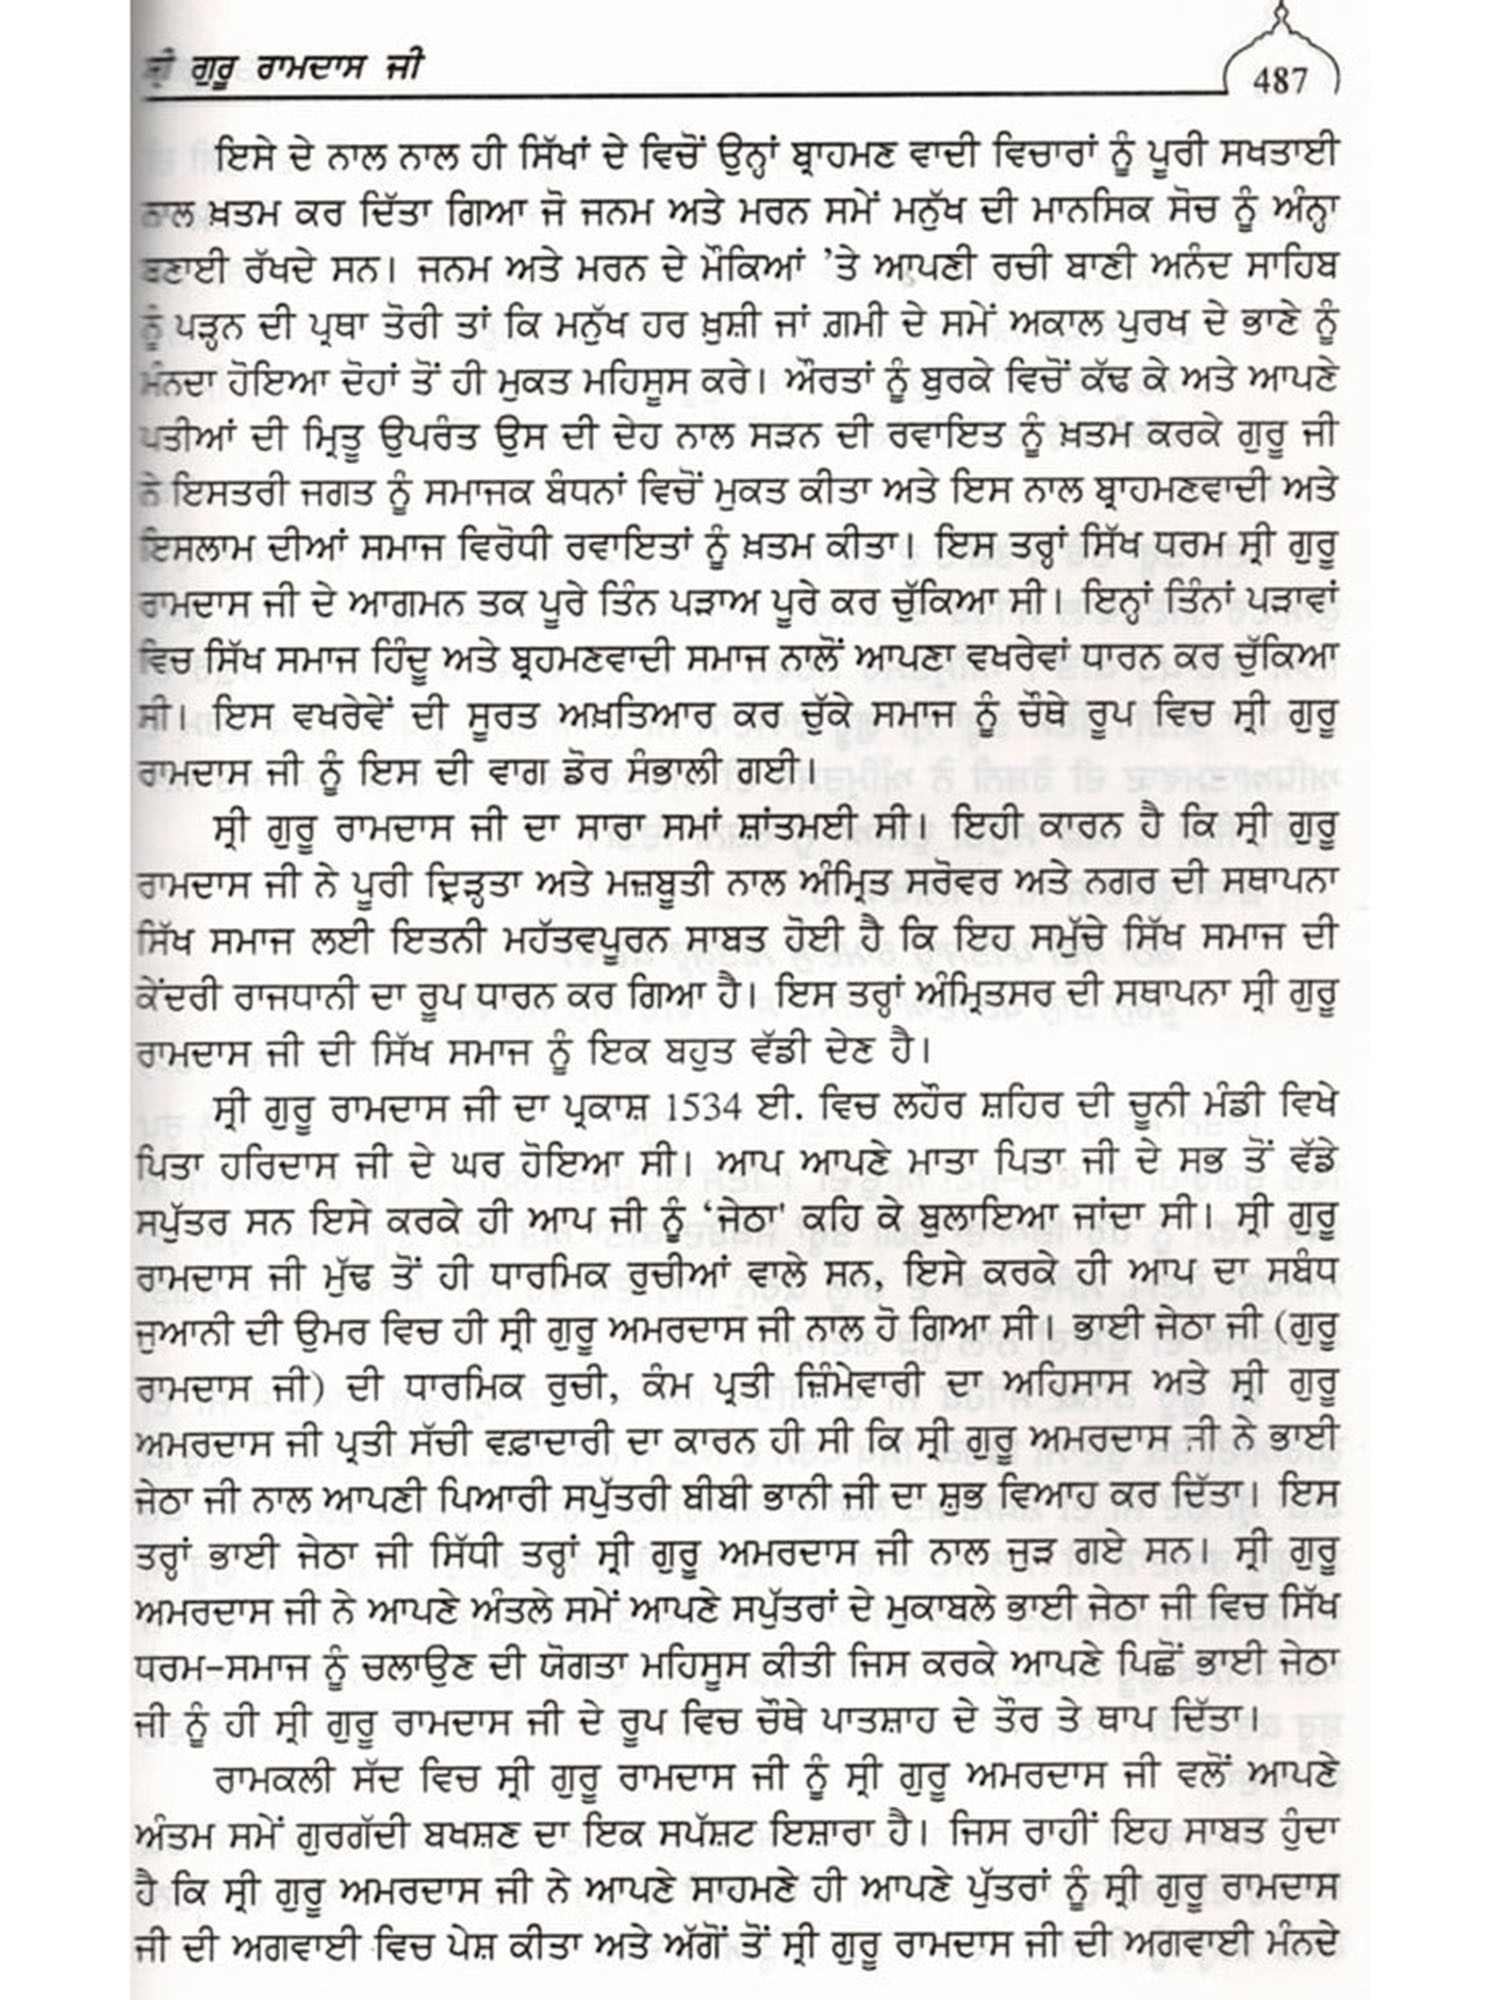 ਸ੍ਰੀ ਗੁਰੂ ਰਾਮਦਾਸ ਜੀ
487
ਇਸੇ ਦੇ ਨਾਲ ਨਾਲ ਹੀ ਸਿੱਖਾਂ ਦੇ ਵਿਚੋਂ ਉਨ੍ਹਾਂ ਬ੍ਰਾਹਮਣ ਵਾਦੀ ਵਿਚਾਰਾਂ ਨੂੰ ਪੂਰੀ ਸਖਤਾਈ
ਨਾਲ ਖ਼ਤਮ ਕਰ ਦਿੱਤਾ ਗਿਆ ਜੋ ਜਨਮ ਅਤੇ ਮਰਨ ਸਮੇਂ ਮਨੁੱਖ ਦੀ ਮਾਨਸਿਕ ਸੋਚ ਨੂੰ ਅੰਨ੍ਹਾ
ਬਣਾਈ ਰੱਖਦੇ ਸਨ। ਜਨਮ ਅਤੇ ਮਰਨ ਦੇ ਮੌਕਿਆਂ ’ਤੇ ਆਪਣੀ ਰਚੀ ਬਾਣੀ ਅਨੰਦ ਸਾਹਿਬ
ਨੂੰ ਪੜ੍ਹਨ ਦੀ ਪ੍ਰਥਾ ਤੋਰੀ ਤਾਂ ਕਿ ਮਨੁੱਖ ਹਰ ਖ਼ੁਸ਼ੀ ਜਾਂ ਗ਼ਮੀ ਦੇ ਸਮੇਂ ਅਕਾਲ ਪੁਰਖ ਦੇ ਭਾਣੇ ਨੂੰ
ਮੰਨਦਾ ਹੋਇਆ ਦੋਹਾਂ ਤੋਂ ਹੀ ਮੁਕਤ ਮਹਿਸੂਸ ਕਰੇ। ਔਰਤਾਂ ਨੂੰ ਬੁਰਕੇ ਵਿਚੋਂ ਕੱਢ ਕੇ ਅਤੇ ਆਪਣੇ
ਪਤੀਆਂ ਦੀ ਮ੍ਰਿਤੂ ਉਪਰੰਤ ਉਸ ਦੀ ਦੇਹ ਨਾਲ ਸੜਨ ਦੀ ਰਵਾਇਤ ਨੂੰ ਖ਼ਤਮ ਕਰਕੇ ਗੁਰੂ ਜੀ
ਨੇ ਇਸਤਰੀ ਜਗਤ ਨੂੰ ਸਮਾਜਕ ਬੰਧਨਾਂ ਵਿਚੋਂ ਮੁਕਤ ਕੀਤਾ ਅਤੇ ਇਸ ਨਾਲ ਬ੍ਰਾਹਮਣਵਾਦੀ ਅਤੇ
ਇਸਲਾਮ ਦੀਆਂ ਸਮਾਜ ਵਿਰੋਧੀ ਰਵਾਇਤਾਂ ਨੂੰ ਖ਼ਤਮ ਕੀਤਾ। ਇਸ ਤਰ੍ਹਾਂ ਸਿੱਖ ਧਰਮ ਸ੍ਰੀ ਗੁਰੂ
ਰਾਮਦਾਸ ਜੀ ਦੇ ਆਗਮਨ ਤਕ ਪੂਰੇ ਤਿੰਨ ਪੜਾਅ ਪੂਰੇ ਕਰ ਚੁੱਕਿਆ ਸੀ। ਇਨ੍ਹਾਂ ਤਿੰਨਾਂ ਪੜਾਵਾਂ
ਵਿਚ ਸਿੱਖ ਸਮਾਜ ਹਿੰਦੂ ਅਤੇ ਬ੍ਰਹਮਣਵਾਦੀ ਸਮਾਜ ਨਾਲੋਂ ਆਪਣਾ ਵਖਰੇਵਾਂ ਧਾਰਨ ਕਰ ਚੁੱਕਿਆ
ਸੀ। ਇਸ ਵਖਰੇਵੇਂ ਦੀ ਸੂਰਤ ਅਖ਼ਤਿਆਰ ਕਰ ਚੁੱਕੇ ਸਮਾਜ ਨੂੰ ਚੌਥੇ ਰੂਪ ਵਿਚ ਸ੍ਰੀ ਗੁਰੂ
ਰਾਮਦਾਸ ਜੀ ਨੂੰ ਇਸ ਦੀ ਵਾਗ ਡੋਰ ਸੰਭਾਲੀ ਗਈ।
ਸ੍ਰੀ ਗੁਰੂ ਰਾਮਦਾਸ ਜੀ ਦਾ ਸਾਰਾ ਸਮਾਂ ਸ਼ਾਂਤਮਈ ਸੀ। ਇਹੀ ਕਾਰਨ ਹੈ ਕਿ ਸ੍ਰੀ ਗੁਰੂ
ਰਾਮਦਾਸ ਜੀ ਨੇ ਪੂਰੀ ਦ੍ਰਿੜ੍ਹਤਾ ਅਤੇ ਮਜ਼ਬੂਤੀ ਨਾਲ ਅੰਮ੍ਰਿਤ ਸਰੋਵਰ ਅਤੇ ਨਗਰ ਦੀ ਸਥਾਪਨਾ
ਸਿੱਖ ਸਮਾਜ ਲਈ ਇਤਨੀ ਮਹੱਤਵਪੂਰਨ ਸਾਬਤ ਹੋਈ ਹੈ ਕਿ ਇਹ ਸਮੁੱਚੇ ਸਿੱਖ ਸਮਾਜ ਦੀ
ਕੇਂਦਰੀ ਰਾਜਧਾਨੀ ਦਾ ਰੂਪ ਧਾਰਨ ਕਰ ਗਿਆ ਹੈ। ਇਸ ਤਰ੍ਹਾਂ ਅੰਮ੍ਰਿਤਸਰ ਦੀ ਸਥਾਪਨਾ ਸ੍ਰੀ ਗੁਰੂ
ਰਾਮਦਾਸ ਜੀ ਦੀ ਸਿੱਖ ਸਮਾਜ ਨੂੰ ਇਕ ਬਹੁਤ ਵੱਡੀ ਦੇਣ ਹੈ।
ਸ੍ਰੀ ਗੁਰੂ ਰਾਮਦਾਸ ਜੀ ਦਾ ਪ੍ਰਕਾਸ਼ 1534 ਈ. ਵਿਚ ਲਹੌਰ ਸ਼ਹਿਰ ਦੀ ਚੂਨੀ ਮੰਡੀ ਵਿਖੇ
ਪਿਤਾ ਹਰਿਦਾਸ ਜੀ ਦੇ ਘਰ ਹੋਇਆ ਸੀ। ਆਪ ਆਪਣੇ ਮਾਤਾ ਪਿਤਾ ਜੀ ਦੇ ਸਭ ਤੋਂ ਵੱਡੇ
ਸਪੁੱਤਰ ਸਨ ਇਸੇ ਕਰਕੇ ਹੀ ਆਪ ਜੀ ਨੂੰ ‘ਜੇਠਾ' ਕਹਿ ਕੇ ਬੁਲਾਇਆ ਜਾਂਦਾ ਸੀ। ਸ੍ਰੀ ਗੁਰੂ
ਰਾਮਦਾਸ ਜੀ ਮੁੱਢ ਤੋਂ ਹੀ ਧਾਰਮਿਕ ਰੁਚੀਆਂ ਵਾਲੇ ਸਨ, ਇਸੇ ਕਰਕੇ ਹੀ ਆਪ ਦਾ ਸਬੰਧ
ਜੁਆਨੀ ਦੀ ਉਮਰ ਵਿਚ ਹੀ ਸ੍ਰੀ ਗੁਰੂ ਅਮਰਦਾਸ ਜੀ ਨਾਲ ਹੋ ਗਿਆ ਸੀ। ਭਾਈ ਜੇਠਾ ਜੀ (ਗੁਰੂ
ਰਾਮਦਾਸ ਜੀ) ਦੀ ਧਾਰਮਿਕ ਰੁਚੀ, ਕੰਮ ਪ੍ਰਤੀ ਜ਼ਿੰਮੇਵਾਰੀ ਦਾ ਅਹਿਸਾਸ ਅਤੇ ਸ੍ਰੀ ਗੁਰੂ
ਅਮਰਦਾਸ ਜੀ ਪ੍ਰਤੀ ਸੱਚੀ ਵਫ਼ਾਦਾਰੀ ਦਾ ਕਾਰਨ ਹੀ ਸੀ ਕਿ ਸ੍ਰੀ ਗੁਰੂ ਅਮਰਦਾਸ ਜੀ ਨੇ ਭਾਈ
ਜੇਠਾ ਜੀ ਨਾਲ ਆਪਣੀ ਪਿਆਰੀ ਸਪੁੱਤਰੀ ਬੀਬੀ ਭਾਨੀ ਜੀ ਦਾ ਸ਼ੁਭ ਵਿਆਹ ਕਰ ਦਿੱਤਾ। ਇਸ
ਤਰ੍ਹਾਂ ਭਾਈ ਜੇਠਾ ਜੀ ਸਿੱਧੀ ਤਰ੍ਹਾਂ ਸ੍ਰੀ ਗੁਰੂ ਅਮਰਦਾਸ ਜੀ ਨਾਲ ਜੁੜ ਗਏ ਸਨ। ਸ੍ਰੀ ਗੁਰੂ
ਅਮਰਦਾਸ ਜੀ ਨੇ ਆਪਣੇ ਅੰਤਲੇ ਸਮੇਂ ਆਪਣੇ ਸਪੁੱਤਰਾਂ ਦੇ ਮੁਕਾਬਲੇ ਭਾਈ ਜੇਠਾ ਜੀ ਵਿਚ ਸਿੱਖ
ਧਰਮ-ਸਮਾਜ ਨੂੰ ਚਲਾਉਣ ਦੀ ਯੋਗਤਾ ਮਹਿਸੂਸ ਕੀਤੀ ਜਿਸ ਕਰਕੇ ਆਪਣੇ ਪਿਛੋਂ ਭਾਈ ਜੇਠਾ
ਜੀ ਨੂੰ ਹੀ ਸ੍ਰੀ ਗੁਰੂ ਰਾਮਦਾਸ ਜੀ ਦੇ ਰੂਪ ਵਿਚ ਚੌਥੇ ਪਾਤਸ਼ਾਹ ਦੇ ਤੌਰ ਤੇ ਥਾਪ ਦਿੱਤਾ।
ਰਾਮਕਲੀ ਸੱਦ ਵਿਚ ਸ੍ਰੀ ਗੁਰੂ ਰਾਮਦਾਸ ਜੀ ਨੂੰ ਸ੍ਰੀ ਗੁਰੂ ਅਮਰਦਾਸ ਜੀ ਵਲੋਂ ਆਪਣੇ
ਅੰਤਮ ਸਮੇਂ ਗੁਰਗੱਦੀ ਬਖਸ਼ਣ ਦਾ ਇਕ ਸਪੱਸ਼ਟ ਇਸ਼ਾਰਾ ਹੈ। ਜਿਸ ਰਾਹੀਂ ਇਹ ਸਾਬਤ ਹੁੰਦਾ
ਹੈ ਕਿ ਸ੍ਰੀ ਗੁਰੂ ਅਮਰਦਾਸ ਜੀ ਨੇ ਆਪਣੇ ਸਾਹਮਣੇ ਹੀ ਆਪਣੇ ਪੁੱਤਰਾਂ ਨੂੰ ਸ੍ਰੀ ਗੁਰੂ ਰਾਮਦਾਸ
ਜੀ ਦੀ ਅਗਵਾਈ ਵਿਚ ਪੇਸ਼ ਕੀਤਾ ਅਤੇ ਅੱਗੋਂ ਤੋਂ ਸ੍ਰੀ ਗੁਰੂ ਰਾਮਦਾਸ ਜੀ ਦੀ ਅਗਵਾਈ ਮੰਨਦੇ